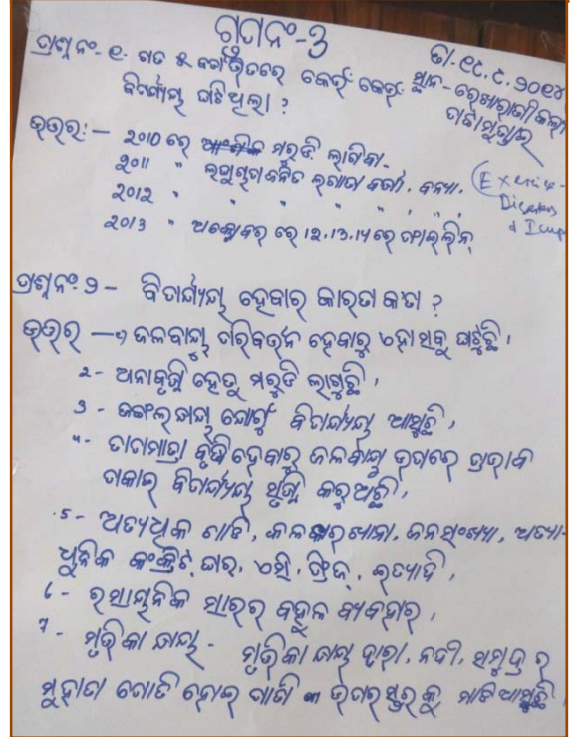 ଗ୍ରୁପ ନଂ-୩
ତା. ୧୯.୯.୨୦୧୪
ପ୍ରଶ୍ନ ନଂ-୧: ଗତ ୫ ବର୍ଷ ଭିତରେ କେଉଁ କେଉଁ
ସ୍ଥାନ-
ବିପର୍ଯ୍ୟୟ ଘଟିଥିଲା ?
ଉତ୍ତର:- ୨୦10 ରେ ମରୁଡି ଲାଗିବା.
୨୦11 " ଲଘୁଚାପ ଜନିତ ଲଗାଣ ବର୍ଷା, ବନ୍ୟା.
୨୦12 " " " " " "
୨୦13 " ଅକ୍ଟୋବର ରେ 12.13.14 ରେ ଫାଇଲିନ୍
(Exercise-
& 
ପ୍ରଶ୍ନ ନଂ ୨ - ବିପର୍ଯ୍ୟୟ ହେବାର କାରଣ କଣ ?
ଉତ୍ତର - ୧ ଜଳବାୟୁ ପରିବର୍ତ୍ତନ ହେବାରୁ ଏହା ସବୁ ଘଟୁଛି ।
2 - ଅନାବୃଷ୍ଟି ହେତୁ ମରୁଡି ଲାଗୁଛି ।
3 - ଜଙ୍ଗଲ କ୍ଷୟ ଯୋଗୁଁ ବିପର୍ଯ୍ୟୟ ଆସୁଛି ।
4 - ତାପମାତ୍ରା ବୃଦ୍ଧି ହେବାରୁ ଜଳବାୟୁ ଉପରେ ପ୍ରଭାବ
ପକାଇ ବିପର୍ଯ୍ୟୟ ସୃଷ୍ଟି କରୁଅଛି ।
5 - ଅତ୍ୟଧିକ ଗାଡି, କଳକାରଖାନା, ଜନସଂଖ୍ୟା, ଅତ୍ୟା-
ଧୁନିକ କଂକ୍ରିଟ୍ ଘର, ଏସି, ଫ୍ରିଜ୍, ଇତ୍ୟାଦି ।
6 - ରସାୟନିକ ସାରର ବହୁଳ ବ୍ୟବହାର ।
7 - ମୃତ୍ତିକା କ୍ଷୟ - ମୃତ୍ତିକା କ୍ଷୟ ଦ୍ୱାରା, ନଦୀ, ସମୁଦ୍ର ର
ମୁହାଣ ପୋତି ହୋଇ ପାଣି ଉପର ସ୍ତର କୁ ମାଡି ଆସୁଛି